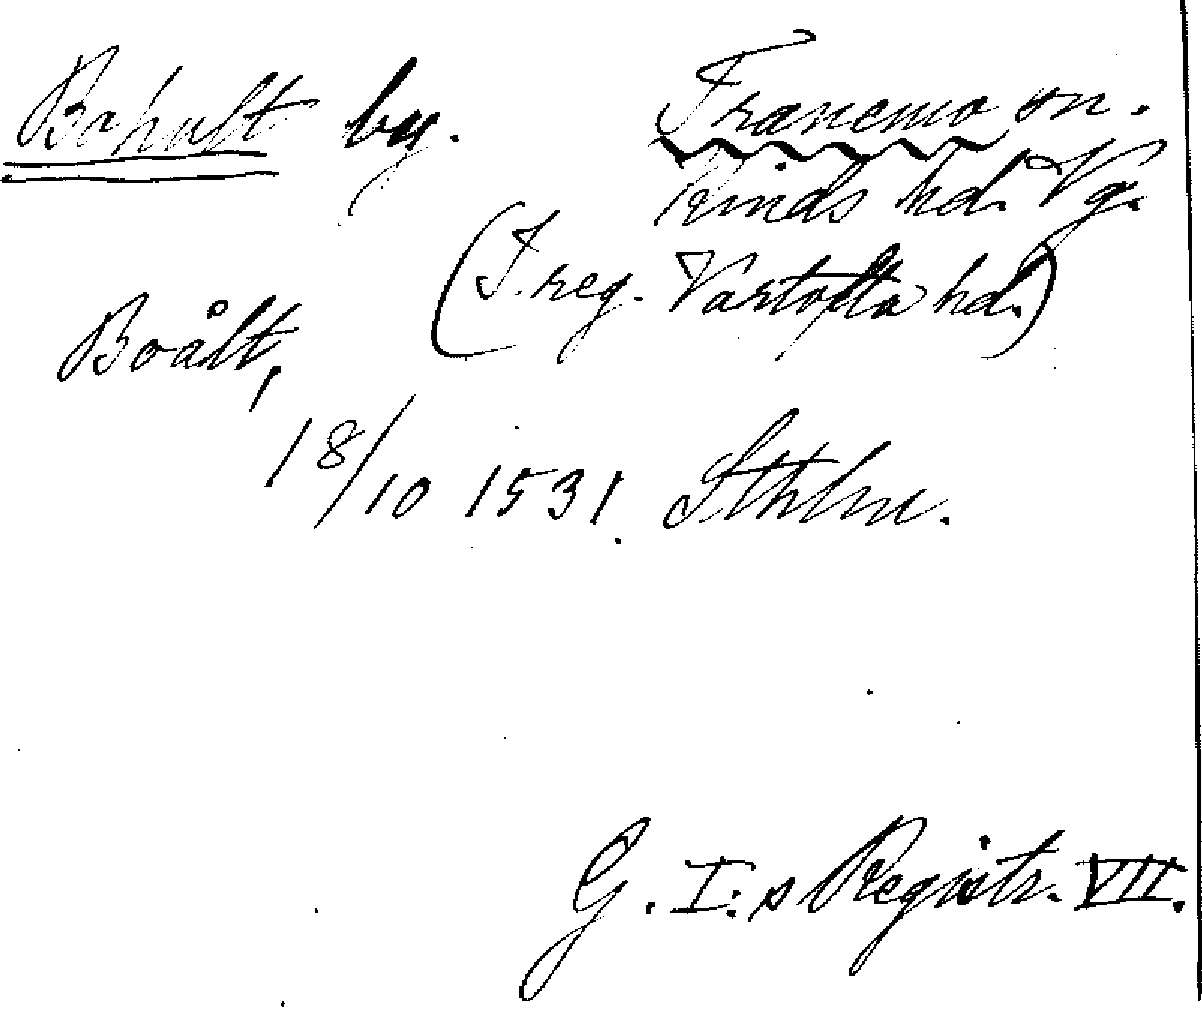 Bohult by. Tranemo sn.
Kinds hd. Vg.
(I reg. Vartofta hd.)
Boålt,
18/10 1531. Sthlm.
G. I:s Registr. VII.